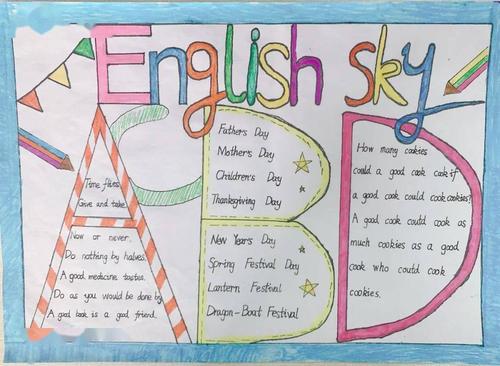 English sky
Time flies
Give and take
Now or never.
Do nothing by halves.
A good medicine tastes.
Do as you would be done by
A good book is a good friend.
Father's Day
Mother's Day
Children's Day
Thanksgiving Day
New Year's Day
Spring Festival Day
Lantern Festival
Dragon-Boat Festival
How many cookies
could a good cook cook if
a good cook could cook cookies?
A good cook could cook as
much cookies as a good
cook who could cook
cookies.